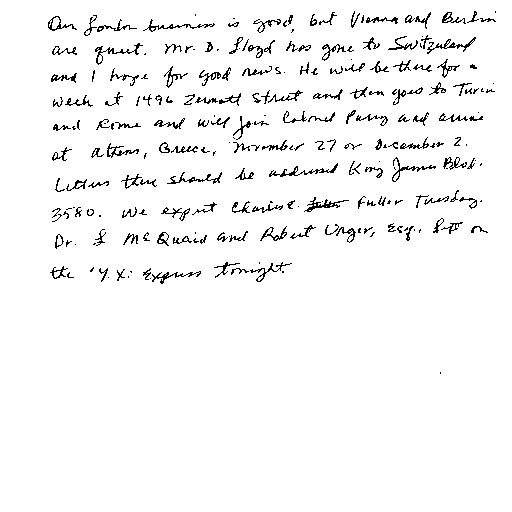 Our London business is good, but Vienna and Berlin
are quiet. Mr. D. Lloyd has gone to Switzerland
and I hope for good news. He will be there for a
week at 1496 Zermott Street and then goes to Turin
and Rome and will join Colonel Parry and arrive
at Athens, Greece, November 27 or December 2.
Letters there should be addressed King James Blvd.
3580. We expect Charles E. Fuller Tuesday.
Dr. L McQuaid and Robert Unger, Esq., left on
the "Y.X. Express tonight.